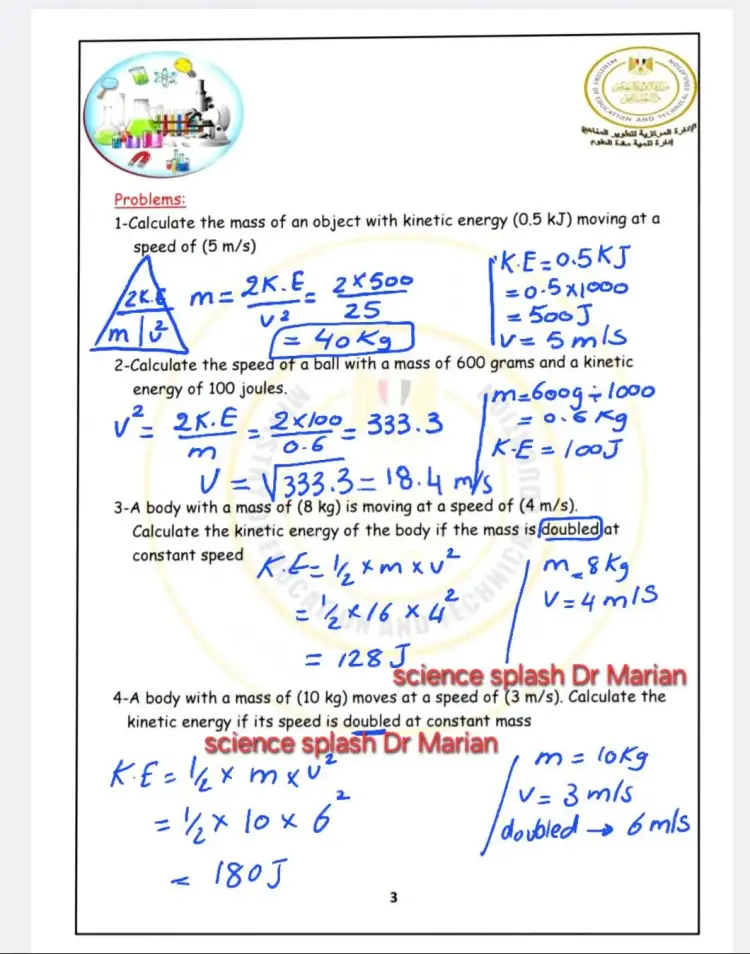 MINISTRY OF EDUCATION AND TECHNICAL EDUCATION
الإدارة المركزية لتطوير المناهج
إدارة تنمية مادة العلوم
Problems:
1-Calculate the mass of an object with kinetic energy (0.5 kJ) moving at a
speed of (5 m/s)
2K.E
m v²
m = 2K.E / v² = 2×500 / 25
= 40 Kg
K.E = 0.5 KJ
= 0.5×1000
= 500 J
v = 5 m/s
2-Calculate the speed of a ball with a mass of 600 grams and a kinetic
energy of 100 joules.
m=600g ÷ 1000
= 0.6 Kg
K.E = 100J
v² = 2K.E / m = 2×100 / 0.6 = 333.3
v = √333.3 = 18.4 m/s
3-A body with a mass of (8 kg) is moving at a speed of (4 m/s).
Calculate the kinetic energy of the body if the mass is doubled at
constant speed
K.E = ½ × m × v²
= ½ × 16 × 4²
= 128 J
m = 8 Kg
v = 4 m/s
science splash Dr Marian
4-A body with a mass of (10 kg) moves at a speed of (3 m/s). Calculate the
kinetic energy if its speed is doubled at constant mass
science splash Dr Marian
K.E = ½ × m × v²
= ½ × 10 × 6²
= 180 J
m = 10Kg
v = 3 m/s
doubled → 6 m/s
3